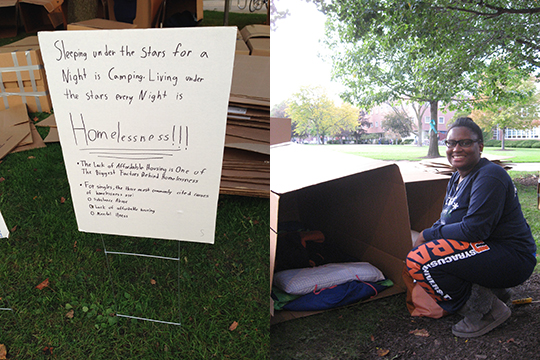 Sleeping under the Stars for a
Night is Camping. Living under
the stars every Night is
Homelessness!!!
• The Lack of Affordable Housing is One of
The Biggest Factors Behind Homelessness
• For singles, the three most commonly cited causes
of homelessness are:
Substance Abuse
Lack of affordable housing
Mental Illness
SYRACUSE